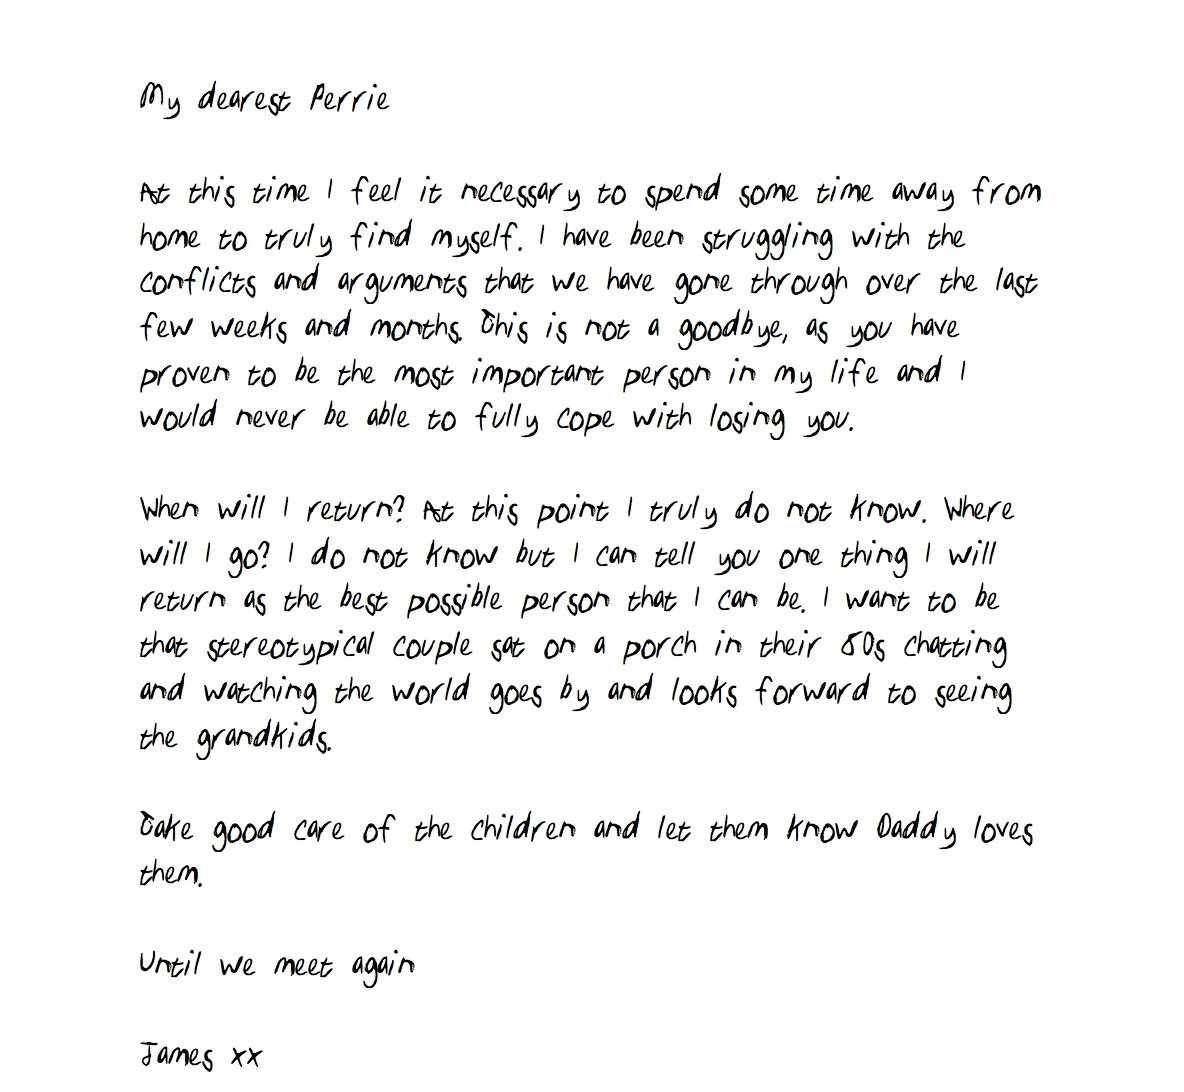 My dearest Perrie
At this time I feel it necessary to spend some time away from
home to truly find myself. I have been struggling with the
conflicts and arguments that we have gone through over the last
few weeks and months. This is not a goodbye, as you have
proven to be the most important person in my life and I
would never be able to fully cope with losing you.
When will I return? At this point I truly do not know. Where
will I go? I do not know but I can tell you one thing I will
return as the best possible person that I can be. I want to be
that stereotypical couple sat on a porch in their 80s chatting
and watching the world goes by and looks forward to seeing
the grandkids.
Take good care of the children and let them know Daddy loves
them.
Until we meet again
James xx